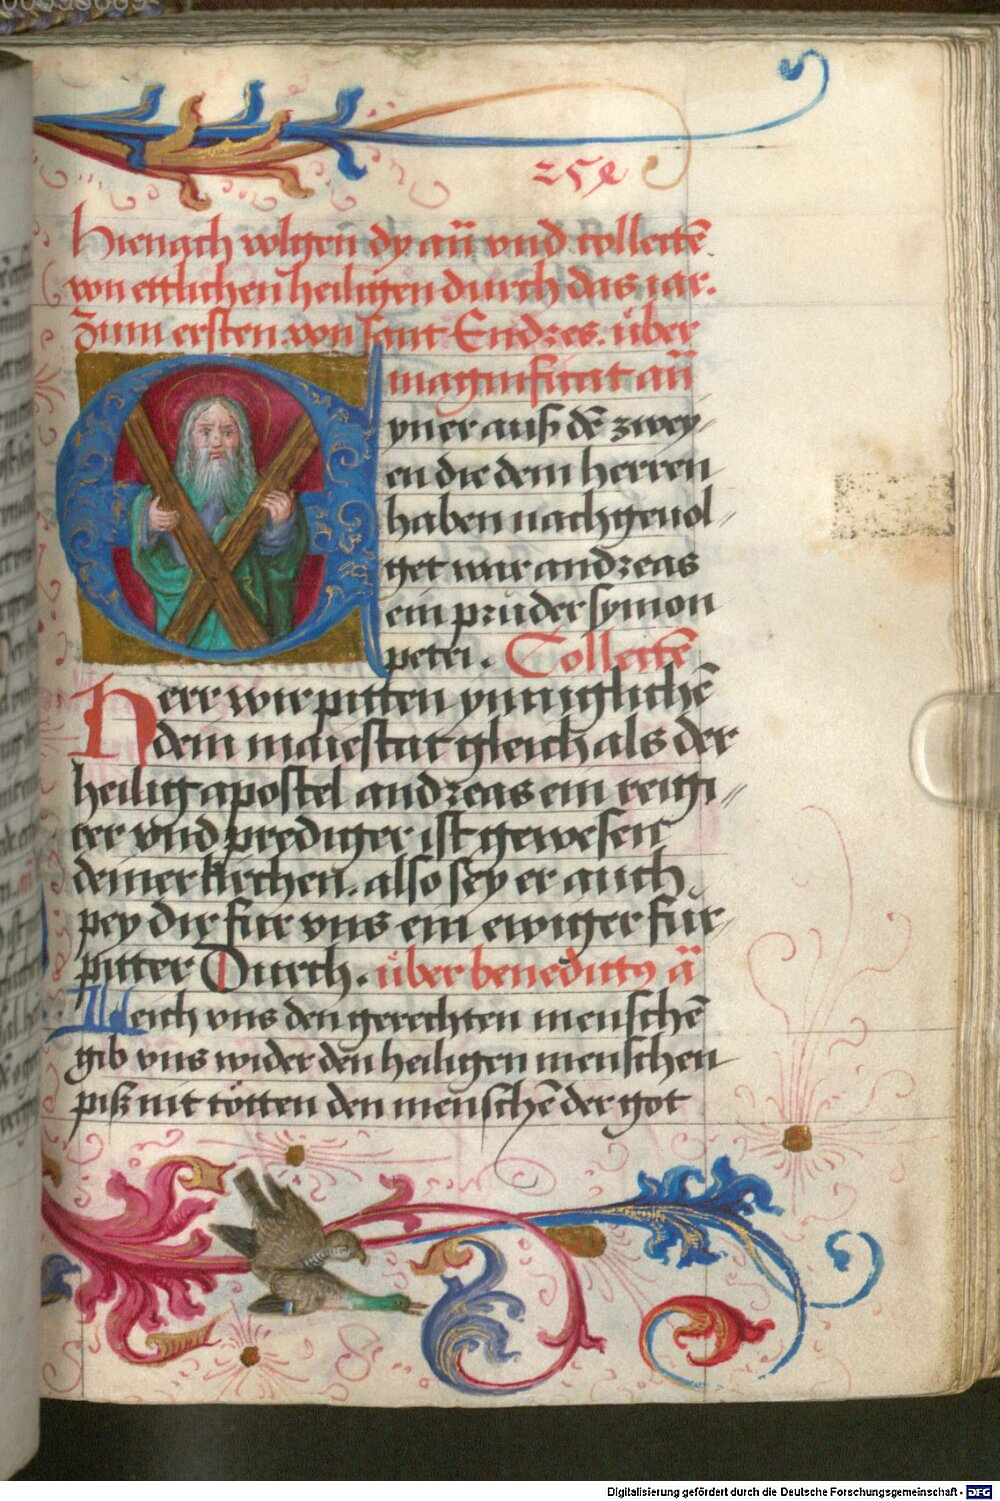 258
Hienach volgen dy añ vnd collectē
von ettlichen heiligen durch das iar.
Zum ersten von sant Endres. über
magnificat añ
Eyner auß dē zwey-
en die dem herren
haben nachgeuol-
get war andreas
ein pruder symon
petri. Collectē
Herr wir pitten ynniglichē
dein maiestat gleich als der
heilig apostel andreas ein reigi-
rer vnd prediger ist gewesen
deiner kirchen. also sey er auch
pey dir für vns ein ewiger für-
pitter Durch. über benedictꝰ ā
Uleich vns den gerechten menschē
gib vns wider den heiligen menschen
piß nit tötten den menschē der got
Digitalisierung gefördert durch die Deutsche Forschungsgemeinschaft - DFG